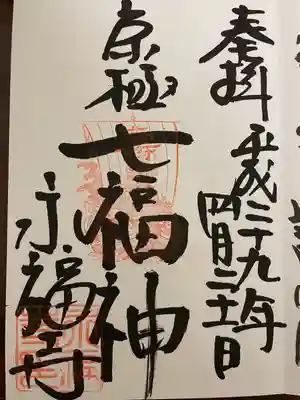 奉拝 平成二十九年
四月二十一日
京極
七福神
永福寺